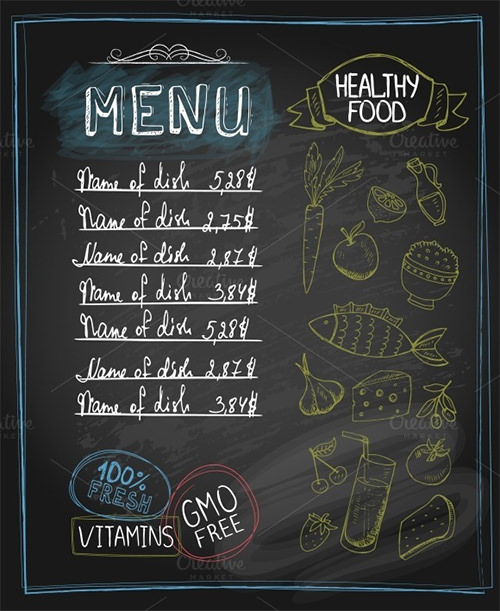 MENU
HEALTHY
FOOD
Name of dish 5,28$
Name of dish 2,75$
Name of dish 2,87$
Name of dish 3,84$
Name of dish 5,28$
Name of dish 2,87$
Name of dish 3,84$
100%
FRESH
VITAMINS
GMO
FREE
Creative
MARKET